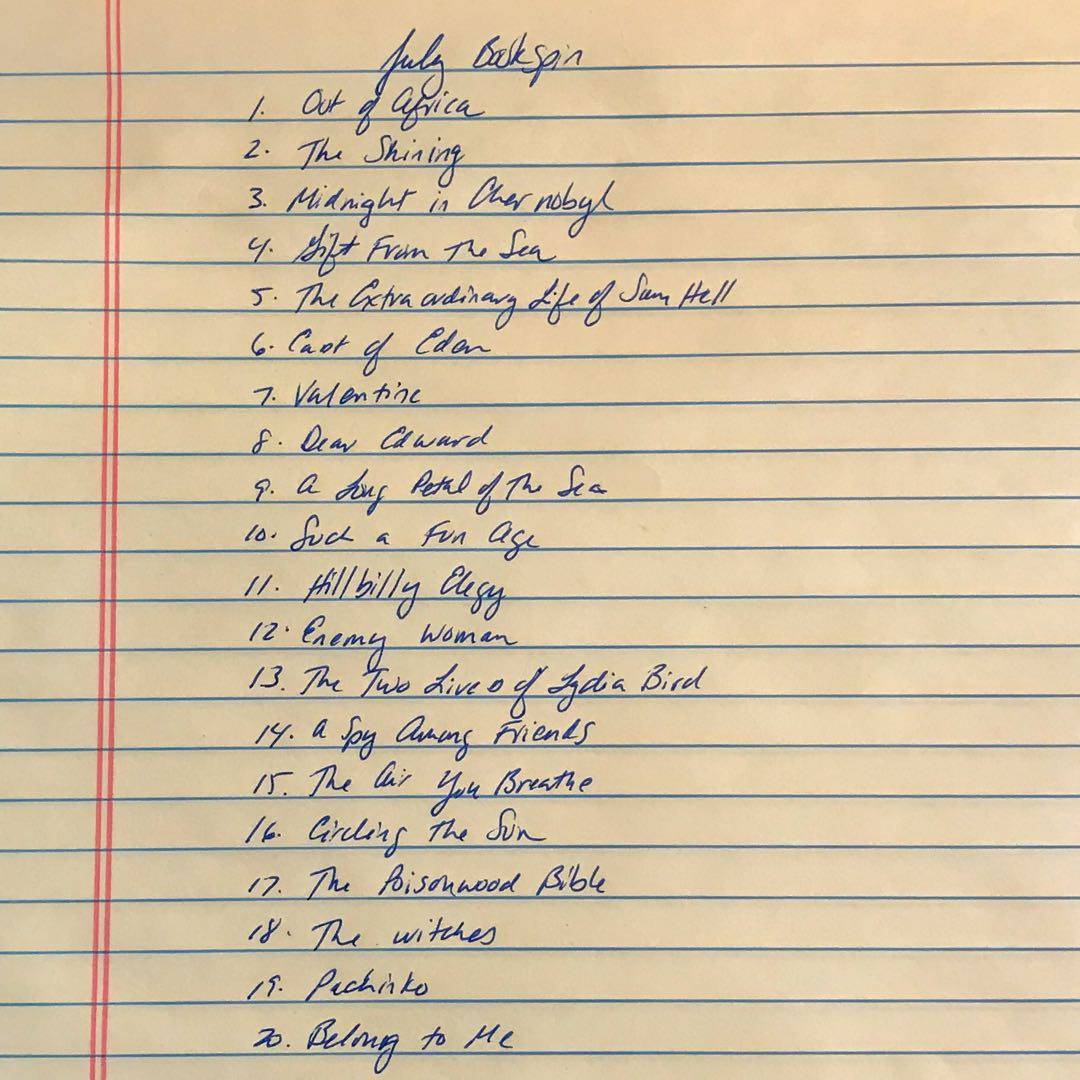 July Bookspin
1. Out of Africa
2. The Shining
3. Midnight in Chernobyl
4. Gift From The Sea
5. The Extraordinary Life of Sam Hell
6. East of Eden
7. Valentine
8. Dear Edward
9. A Long Petal of The Sea
10. Such a Fun Age
11. Hillbilly Elegy
12. Enemy Woman
13. The Two Lives of Lydia Bird
14. A Spy Among Friends
15. The Air You Breathe
16. Circling The Sun
17. The Poisonwood Bible
18. The witches
19. Pachinko
20. Belong to Me